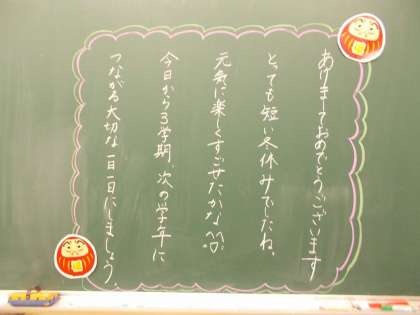 あけましておめでとうございます
とっても短い冬休みでしたね。
元気に楽しくすごせたかな^^?
今日から3学期、次の学年に
つながる大切な一日一日にしましょう。